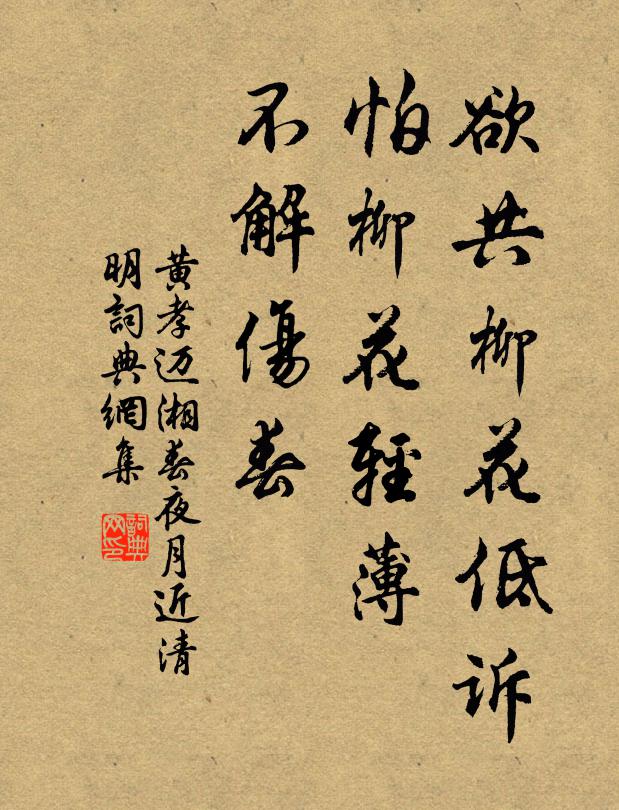 欲共柳花低诉
怕柳花輕薄
不解傷春
黄孝迈湘春夜月近清
明詞典網集
詞典网印